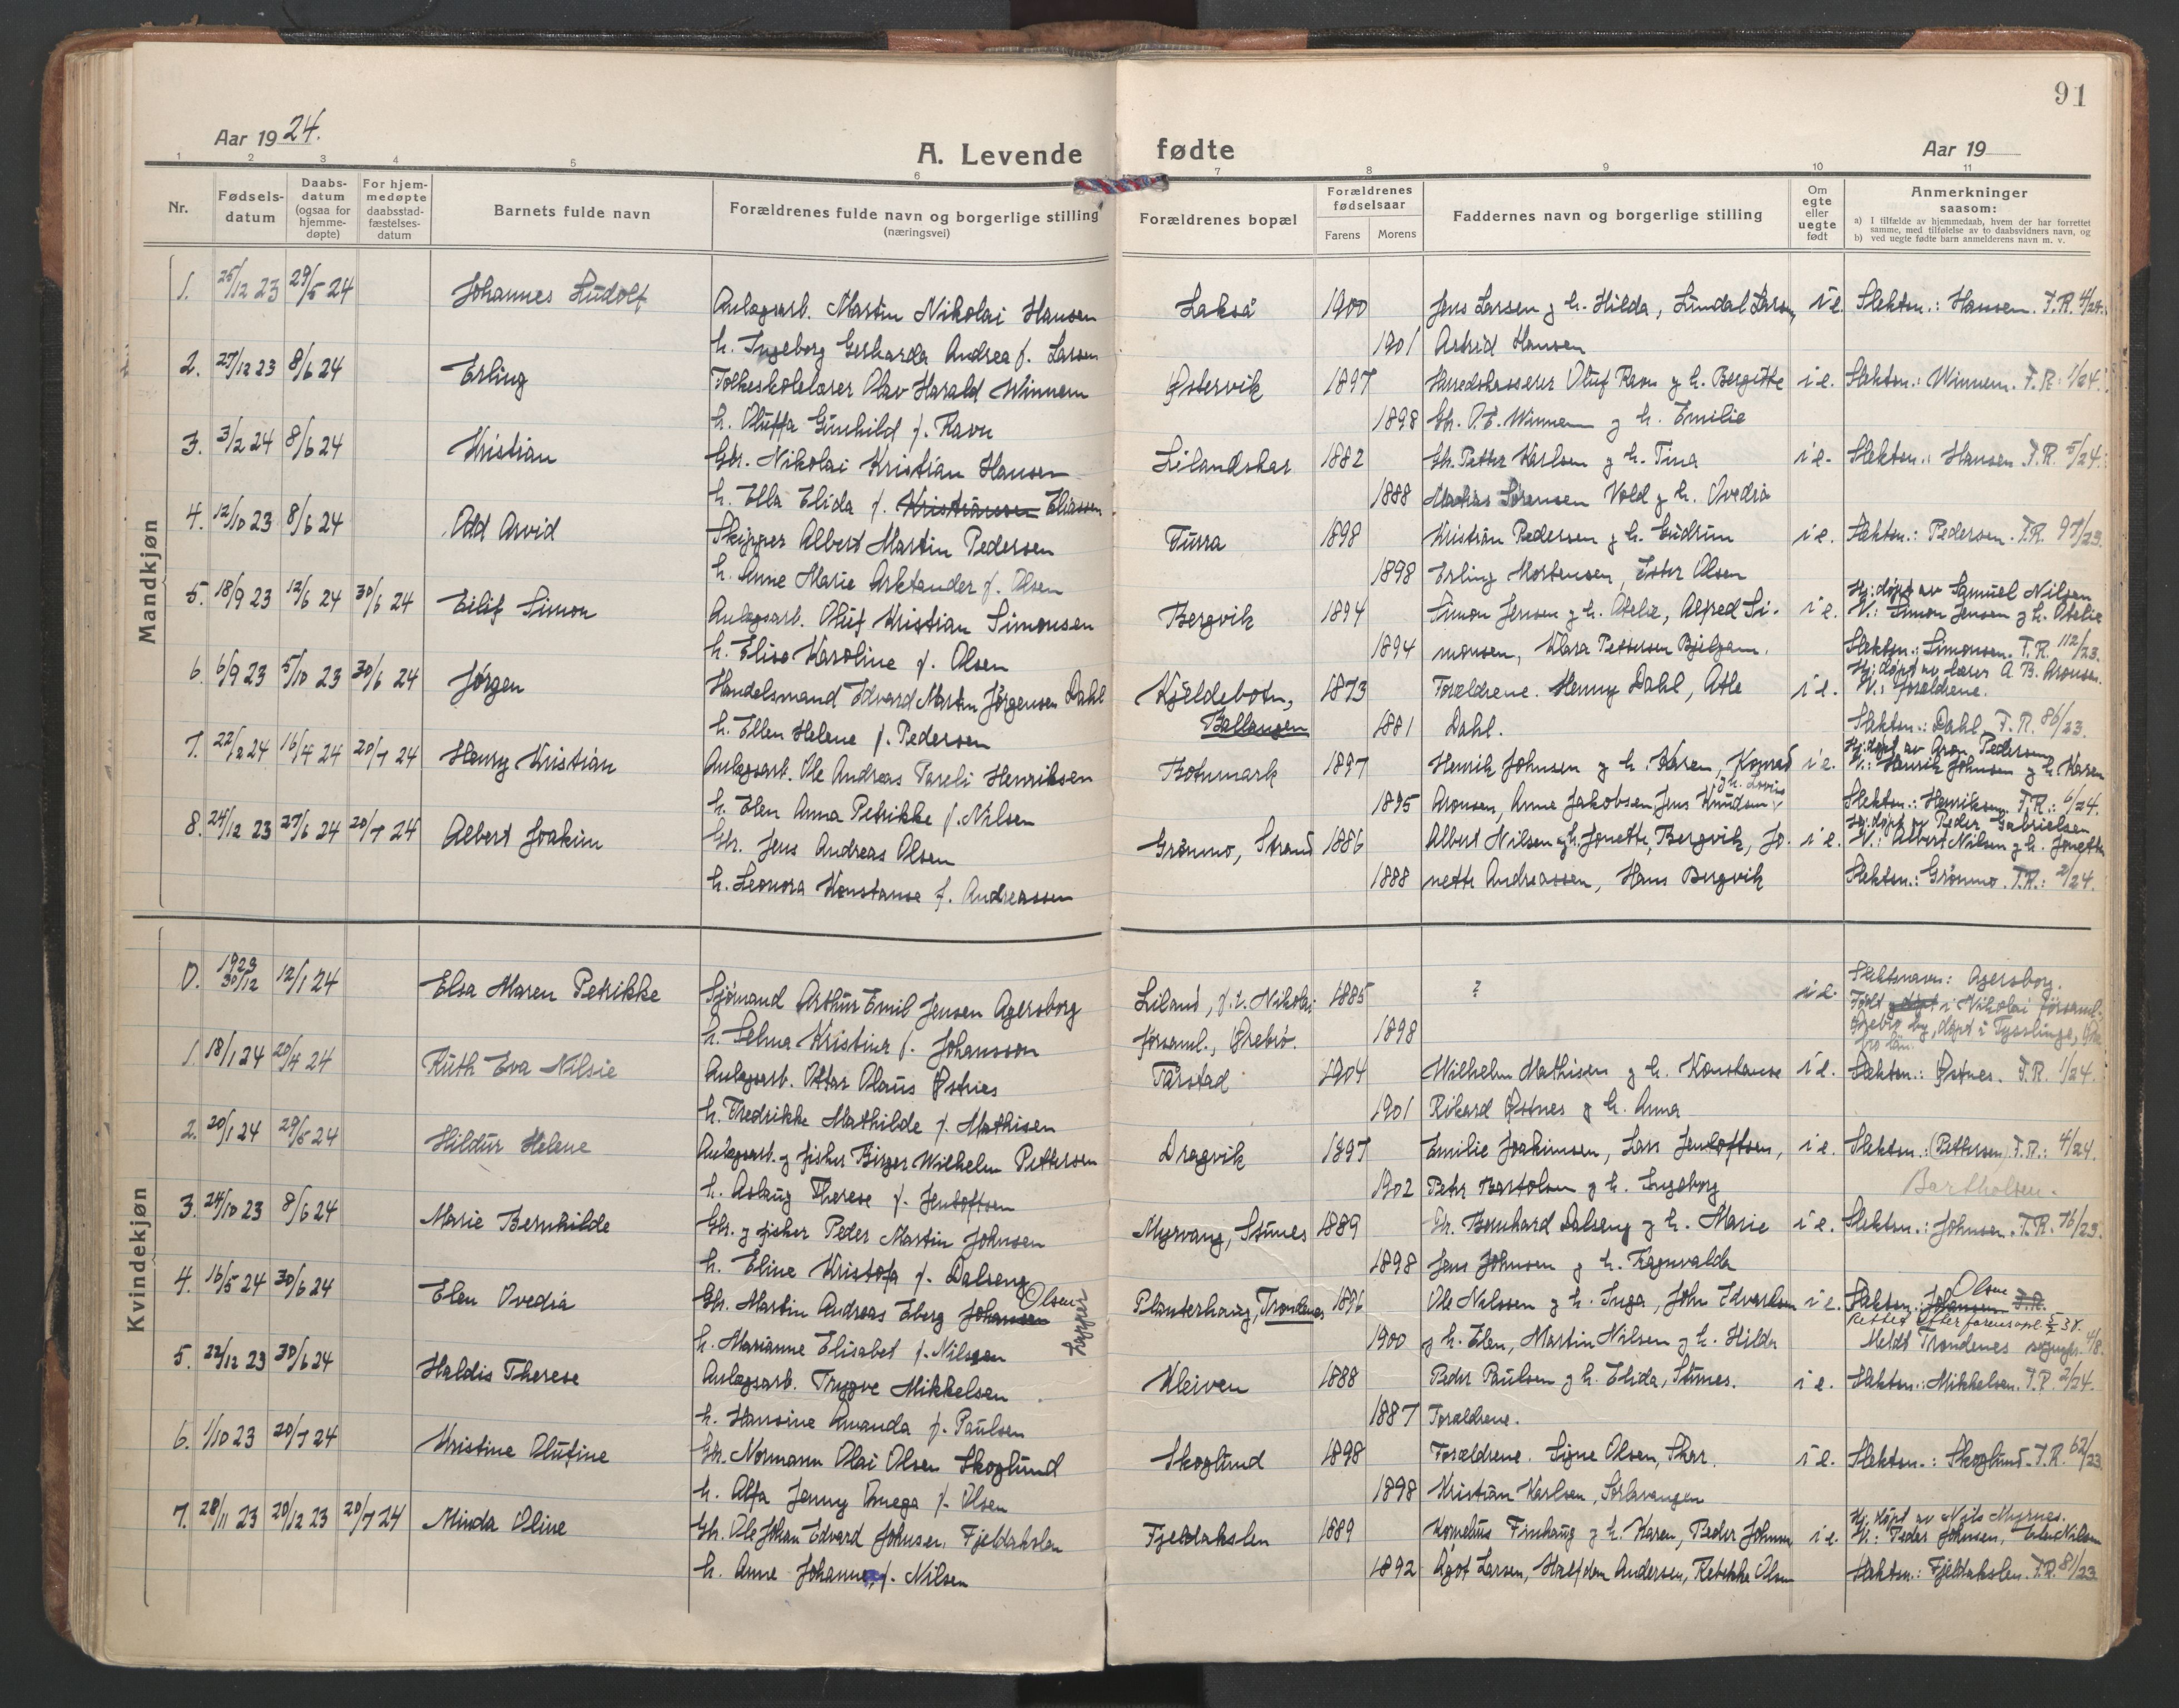 91
Aar 1924.
A. Levende fødte
Aar 19
1 2 3 4 5 6 7 8 9 10 11
Nr. Fødsels-datum Daabs-datum (ogsaa for hjemme-døpte) For hjem-medøpte daabsstad-fæstelses-datum Barnets fulde navn Forældrenes fulde navn og borgerlige stilling (næringsvei) Forældrenes bopæl Forældrenes fødselsaar Farens Morens Faddernes navn og borgerlige stilling Om egte eller uegte født Anmerkninger saasom:
a) I tilfælde av hjemmedaab, hvem der har forrettet samme, med tilføielse av to daabsvidners navn, og
b) ved uegte fødte barn anmelderens navn m. v.
Mandkjøn
1. 25/12 23 29/5 24 Johannes Ludolf Anlægsarb. Martin Nikolai Hansen Lakså 1900 Jens Larsen g h. Hilda, Lindal Larsen, i e. Slektsn.: Hansen. F.R. 4/24.
h. Ingeborg Gerharda Andrea f. Larsen 1901 Astrid Hansen
2. 27/12 23 8/6 24 Erling Folkeskolelærer Olav Harald Winnem Østervik 1897 Herredskasserer Oluf Ravn g h. Bergitte i e. Slektsn.: Winnem. F.R. 1/24.
h. Oluffa Gunhild f. Ravn 1898 Gbr. O.E. Winnem g h. Emilie
3. 3/2 24 8/6 24 Kristian Gbr. Nikolai Kristian Hansen Lilandskar 1882 Gbr. Petter Karlsen g h. Tina i e. Slektsn.: Hansen F.R. 5/24.
h. Ella Elida f. Kristiansen Eliassen 1888 Markus Sørensen Vold g h. Ovedia
4. 12/10 23 8/6 24 Odd Arvid Skipper Albert Martin Pedersen Furra 1898 Kristian Pedersen g h. Gudrun i e. Slektsn.: Pedersen. F.R. 97/23.
h. Anne Marie Arktander f. Olsen 1898 Erling Mortensen, Ester Olsen
5. 18/9 23 12/6 24 30/6 24 Eilif Simon Anlægsarb. Oluf Kristian Simonsen Bergvik 1894 Simon Jensen g h. Otelie, Alfred Si- i e. Hj:døpt av Samuel Nilsen
V.: Simon Jensen g h. Otelie
h. Elise Karoline f. Olsen 1894 monsen, Klara Pettersen Bjelgam. Slektsn.: Simonsen. F.R. 112/23.
6. 6/9 23 5/10 23 30/6 24 Jørgen Handelsmand Edvard Martin Jørgensen Dahl Kjeldebotn, 1873 Forældrene. Henny Dahl, Atle i e. Hj:døpt av lærer A. B. Aronsen.
V.: forældrene.
h. Ellen Helene f. Pedersen Ballangen 1881 Dahl. Slektsn.: Dahl. F.R. 86/23.
7. 22/2 24 16/4 24 20/7 24 Henry Kristian Anlægsarb. Ole Andreas Pareli Henriksen Botnmark 1897 Henrik Johnsen g h. Karen, Konrad i e. Hj:døpt av Aron Pedersen
V.: Henrik Johnsen g h. Karen
h. Elen Anna Petrikke f. Nilsen 1895 Aronsen, Anne Jakobsen, Jens Knudsen g h. Lovise Slektsn.: Henriksen. F.R.: 6/24.
8. 24/12 23 27/6 24 20/7 24 Albert Joakim Gbr. Jens Andreas Olsen Grønmo, Strand 1886 Albert Nilsen g h. Jonette, Bergvik, Jo- i e. Hj:døpt av Peder Gabrielsen
V.: Albert Nilsen g h. Jonette
h. Leonora Konstanse f. Andreassen 1888 nette Andreassen, Hans Bergvik Slektsn.: Grønmo. F.R.: 2/24.
Kvindekjøn
0. 1923 30/12 12/1 24 Elsa Maren Petrikke Sjømand Arthur Emil Jensen Agersborg Liland, f. t. Nikolai 1885 ? i e. Slektsnavn: Agersborg.
Født døpt i Nikolai församl.
h. Selma Kristina f. Johansson församl., Ørebro. 1898 Ørebro by, døpt i Tysslinge, Øre
bro län.
1. 18/1 24 20/4 24 Ruth Eva Nilsie Anlægsarb. Ottar Olaus Østnes Tårstad 1904 Wilhelm Mathisen g h. Konstanse i e. Slektsn.: Østnes. F.R. 1/24.
h. Fredrikke Mathilde f. Mathisen 1901 Rikard Østnes g h. Anna
2. 20/1 24 29/5 24 Hildur Helene Anlægsarb. g fisker Birger Wilhelm Pettersen Dragvik 1897 Emilie Joakimsen, Lars Jentoftsen, i e. Slektsn.: (Pettersen) F.R.: 4/24.
h. Aslaug Therese f. Jentoftsen 1902 Petr Bartolsen g h. Ingeborg Bartholsen.
3. 24/10 23 8/6 24 Marie Bernhilde Gbr. g fisker Peder Martin Johnsen Myrvang, Stunes 1889 Gbr. Bernhard Dalseng g h. Marie i e. Slektsn.: Johnsen. F.R. 76/23.
h. Eline Kristofa f. Dalseng 1898 Jens Johnsen g h. Ragnvalda
4. 16/5 24 30/6 24 Elen Ovedia Gbr. Martin Andreas Eberg Johansen Olsen Planterhaug, Trondenes 1896 Ole Nilssen g h. Inga, John Edvardsen i e. Slektsn.: Johansen Olsen F.R.
Rettet efter
h. Marianne Elisabet f. Nilsen Lapper 1900 g h. Elen, Martin Nilsen g h. Hilda Meldt Trondenes sogneprs. 4/8.
5. 22/12 23 30/6 24 Haldis Therese Anlægsarb. Trygve Mikkelsen Kleiven 1888 Peder Paulsen g h. Elida, Stunes. i e. Slektsn.: Mikkelsen. F.R. 2/24.
h. Hansine Amanda f. Paulsen 1887 Forældrene.
6. 1/10 23 20/7 24 Kristine Olufine Gbr. Normann Olai Olsen Skoglund Skoglund 1898 Forældrene. Signe Olsen, Skar. i e. Slektsn.: Skoglund. F.R. 62/23
h. Alfa Jenny Omega f. Olsen 1898 Kristian Karlsen, Sørlavangen
7. 28/11 23 20/12 23 20/7 24 Minda Oline Gbr. Ole Johan Edvard Johnsen, Fjeldakslen Fjeldakslen 1889 Kornelius Finhaug g h. Karen, Peder Johnsen i e. Hj.døpt av Nils Myrnes.
V.: Peder Johnsen, Elen Nilsen
h. Anne Johanne, f. Nilsen 1892 Ågot Larsen, Halfdan Andersen, Rebekka Olsen Slektsn.: Fjeldakslen. F.R. 81/23